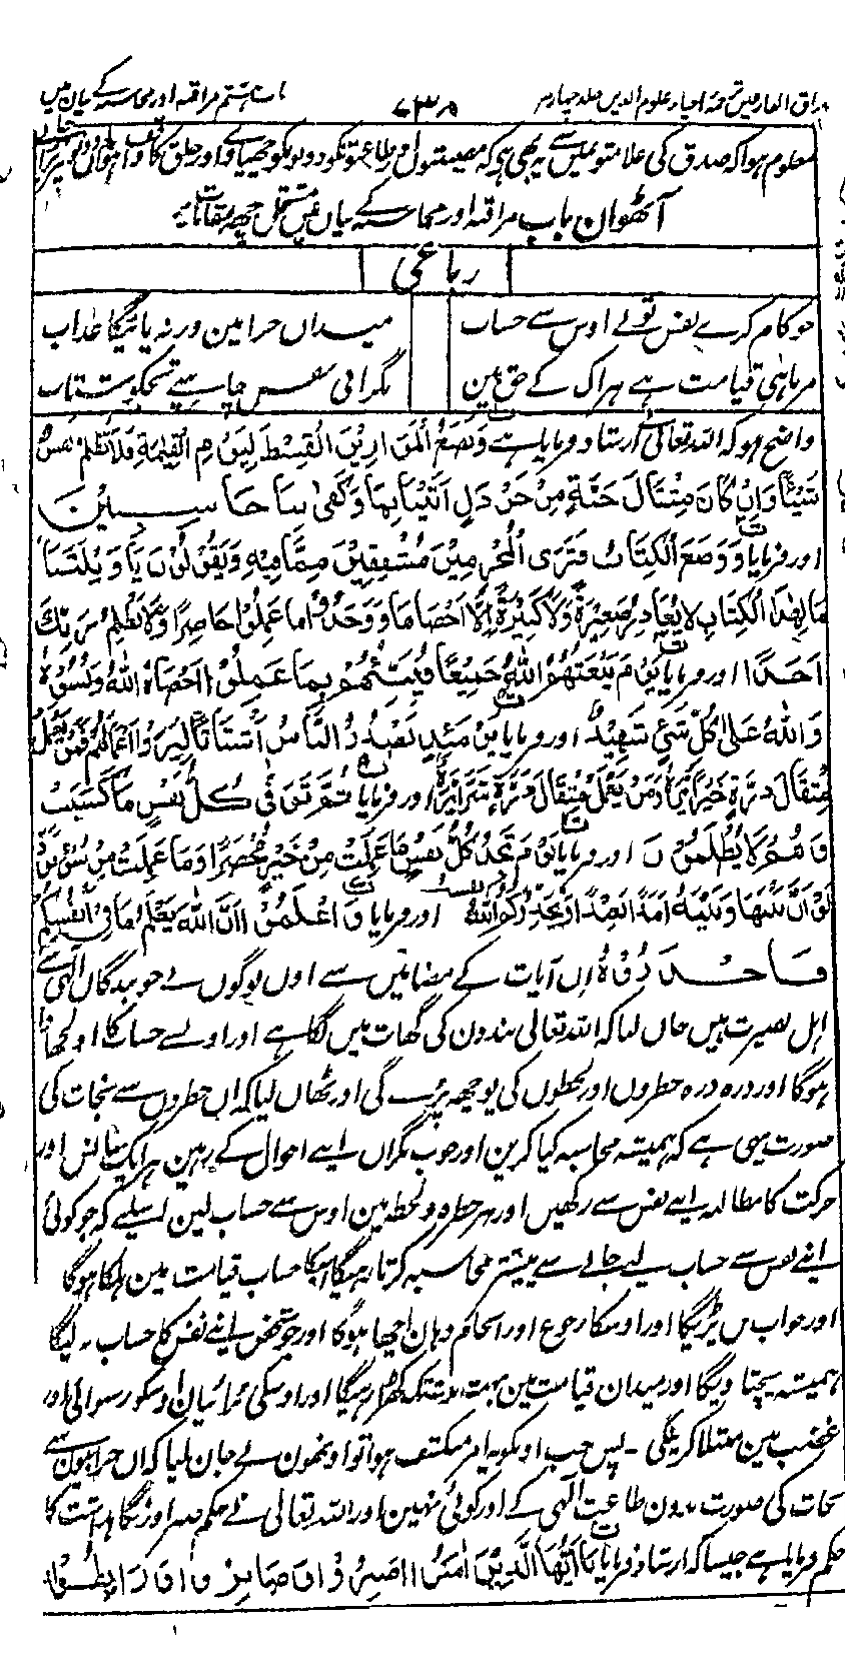 مذاق العارفین ترجمۂ احیاء علوم الدین جلد چہارم ۷۳۸ باب ہشتم مراقبہ اور محاسبہ کے بیان میں
معلوم ہوا کہ صدق کی علامتوں میں سے یہ بھی ہے کہ مصیبتوں اور طاعتونکو دونوںکو چھپاوے اور خلق کا واقف
آٹھواں باب مراقبہ اور محاسبہ کے بیان میں مشتمل چھ مقامات پر
رباعی
جو کام کرے نفس تو لے اوس سے حساب میدان جزا مین ورنہ پائیگا عذاب
قیامت ہے ہراک کے حق مین نگرانی نفس چاہیے تجکو شتاب
واضح ہو کہ اللہ تعالیٰ ارشاد فرماتا ہے وَنَضَعُ الْمَوَازِیْنَ الْقِسْطَ لِیَوْمِ الْقِیٰمَةِ فَلَا تُظْلَمُ نَفْسٌ
شَیْئًا وَاِنْ كَانَ مِثْقَالَ حَبَّةٍ مِنْ خَرْدَلٍ اَتَیْنَا بِهَا وَكَفٰی بِنَا حَاسِبِیْنَ
اور فرمایا وَوُضِعَ الْكِتَابُ فَتَرَی الْمُجْرِمِیْنَ مُشْفِقِیْنَ مِمَّا فِیْهِ وَیَقُوْلُوْنَ یَا وَیْلَتَنَا
مَالِ هٰذَا الْكِتَابِ لَا یُغَادِرُ صَغِیْرَةً وَلَا كَبِیْرَةً اِلَّا اَحْصَاهَا وَوَجَدُوْا مَا عَمِلُوْا حَاضِرًا وَلَا یَظْلِمُ رَبُّكَ
اَحَدًا اور فرمایا یَوْمَ یَبْعَثُهُمُ اللّٰهُ جَمِیْعًا فَیُنَبِّئُهُمْ بِمَا عَمِلُوْا اَحْصَاهُ اللّٰهُ وَنَسُوْهُ
وَاللّٰهُ عَلٰی كُلِّ شَیْءٍ شَهِیْدٌ اور فرمایا یَوْمَئِذٍ یَصْدُرُ النَّاسُ اَشْتَاتًا لِیُرَوْا اَعْمَالَهُمْ فَمَنْ یَعْمَلْ
مِثْقَالَ ذَرَّةٍ خَیْرًا یَرَهُ وَمَنْ یَعْمَلْ مِثْقَالَ ذَرَّةٍ شَرًّا یَرَهُ اور فرمایا ثُمَّ تُوَفّٰی كُلُّ نَفْسٍ مَا كَسَبَتْ
وَهُمْ لَا یُظْلَمُوْنَ اور فرمایا یَوْمَ تَجِدُ كُلُّ نَفْسٍ مَا عَمِلَتْ مِنْ خَیْرٍ مُحْضَرًا وَمَا عَمِلَتْ مِنْ سُوْءٍ تَوَدُّ
لَوْ اَنَّ بَیْنَهَا وَبَیْنَهُ اَمَدًا بَعِیْدًا وَیُحَذِّرُكُمُ اللّٰهُ نفسہ اور فرمایا وَاعْلَمُوْا اَنَّ اللّٰهَ یَعْلَمُ مَا فِیْ اَنْفُسِكُمْ
فَاحْذَرُوْهُ ان آیات کے مضامین سے اون لوگوں نے جو بندگان الٰہی سے
اہل بصیرت ہیں جان لیا کہ اللہ تعالیٰ بندون کی گھات میں لگا ہے اور اونسے حساب کا اولجھاؤ
ہوگا اور ذرہ ذرہ خطروں اور لحظوں کی پوچھ پڑے گی اور ٹھان لیا کہ ان خطروں سے نجات کی
صورت یہی ہے کہ ہمیشہ محاسبہ کیا کرین اور خوب نگران اپنے احوال کے رہین ہر ایک سانس اور
حرکت کا مطالبہ اپنے نفس سے رکھیں اور ہر خطرہ و لحظہ مین اوس سے حساب لین اسلیے کہ جو کوئی
اپنے نفس سے حساب لیے جانے سے پیشتر محاسبہ کرتا رہیگا اوسکا حساب قیامت مین ہلکا ہوگا
اور جواب بن پڑیگا اور اوسکا رجوع اور انجام وہان اچھا ہوگا اور جو شخص اپنے نفس کا حساب نہ لیگا
ہمیشہ پچتاویگا اور میدان قیامت مین بہت مدت تک کھڑا رہیگا اور اوسکی برائیان اوسکو رسوائی اور
غضب مین مبتلا کرینگی ۔ پس جب اونکو یہ امر منکشف ہوا تو اونھون نے جان لیا کہ ان خرابیون سے
نجات کی صورت بدون طاعت الٰہی کے اور کوئی نہین اور اللہ تعالیٰ نے حکم صبر اور نگاہداشت کا
حکم فرمایا ہے جیسا کہ ارشاد فرمایا یَا اَیُّهَا الَّذِیْنَ اٰمَنُوا اصْبِرُوْا وَصَابِرُوْا وَرَابِطُوْا